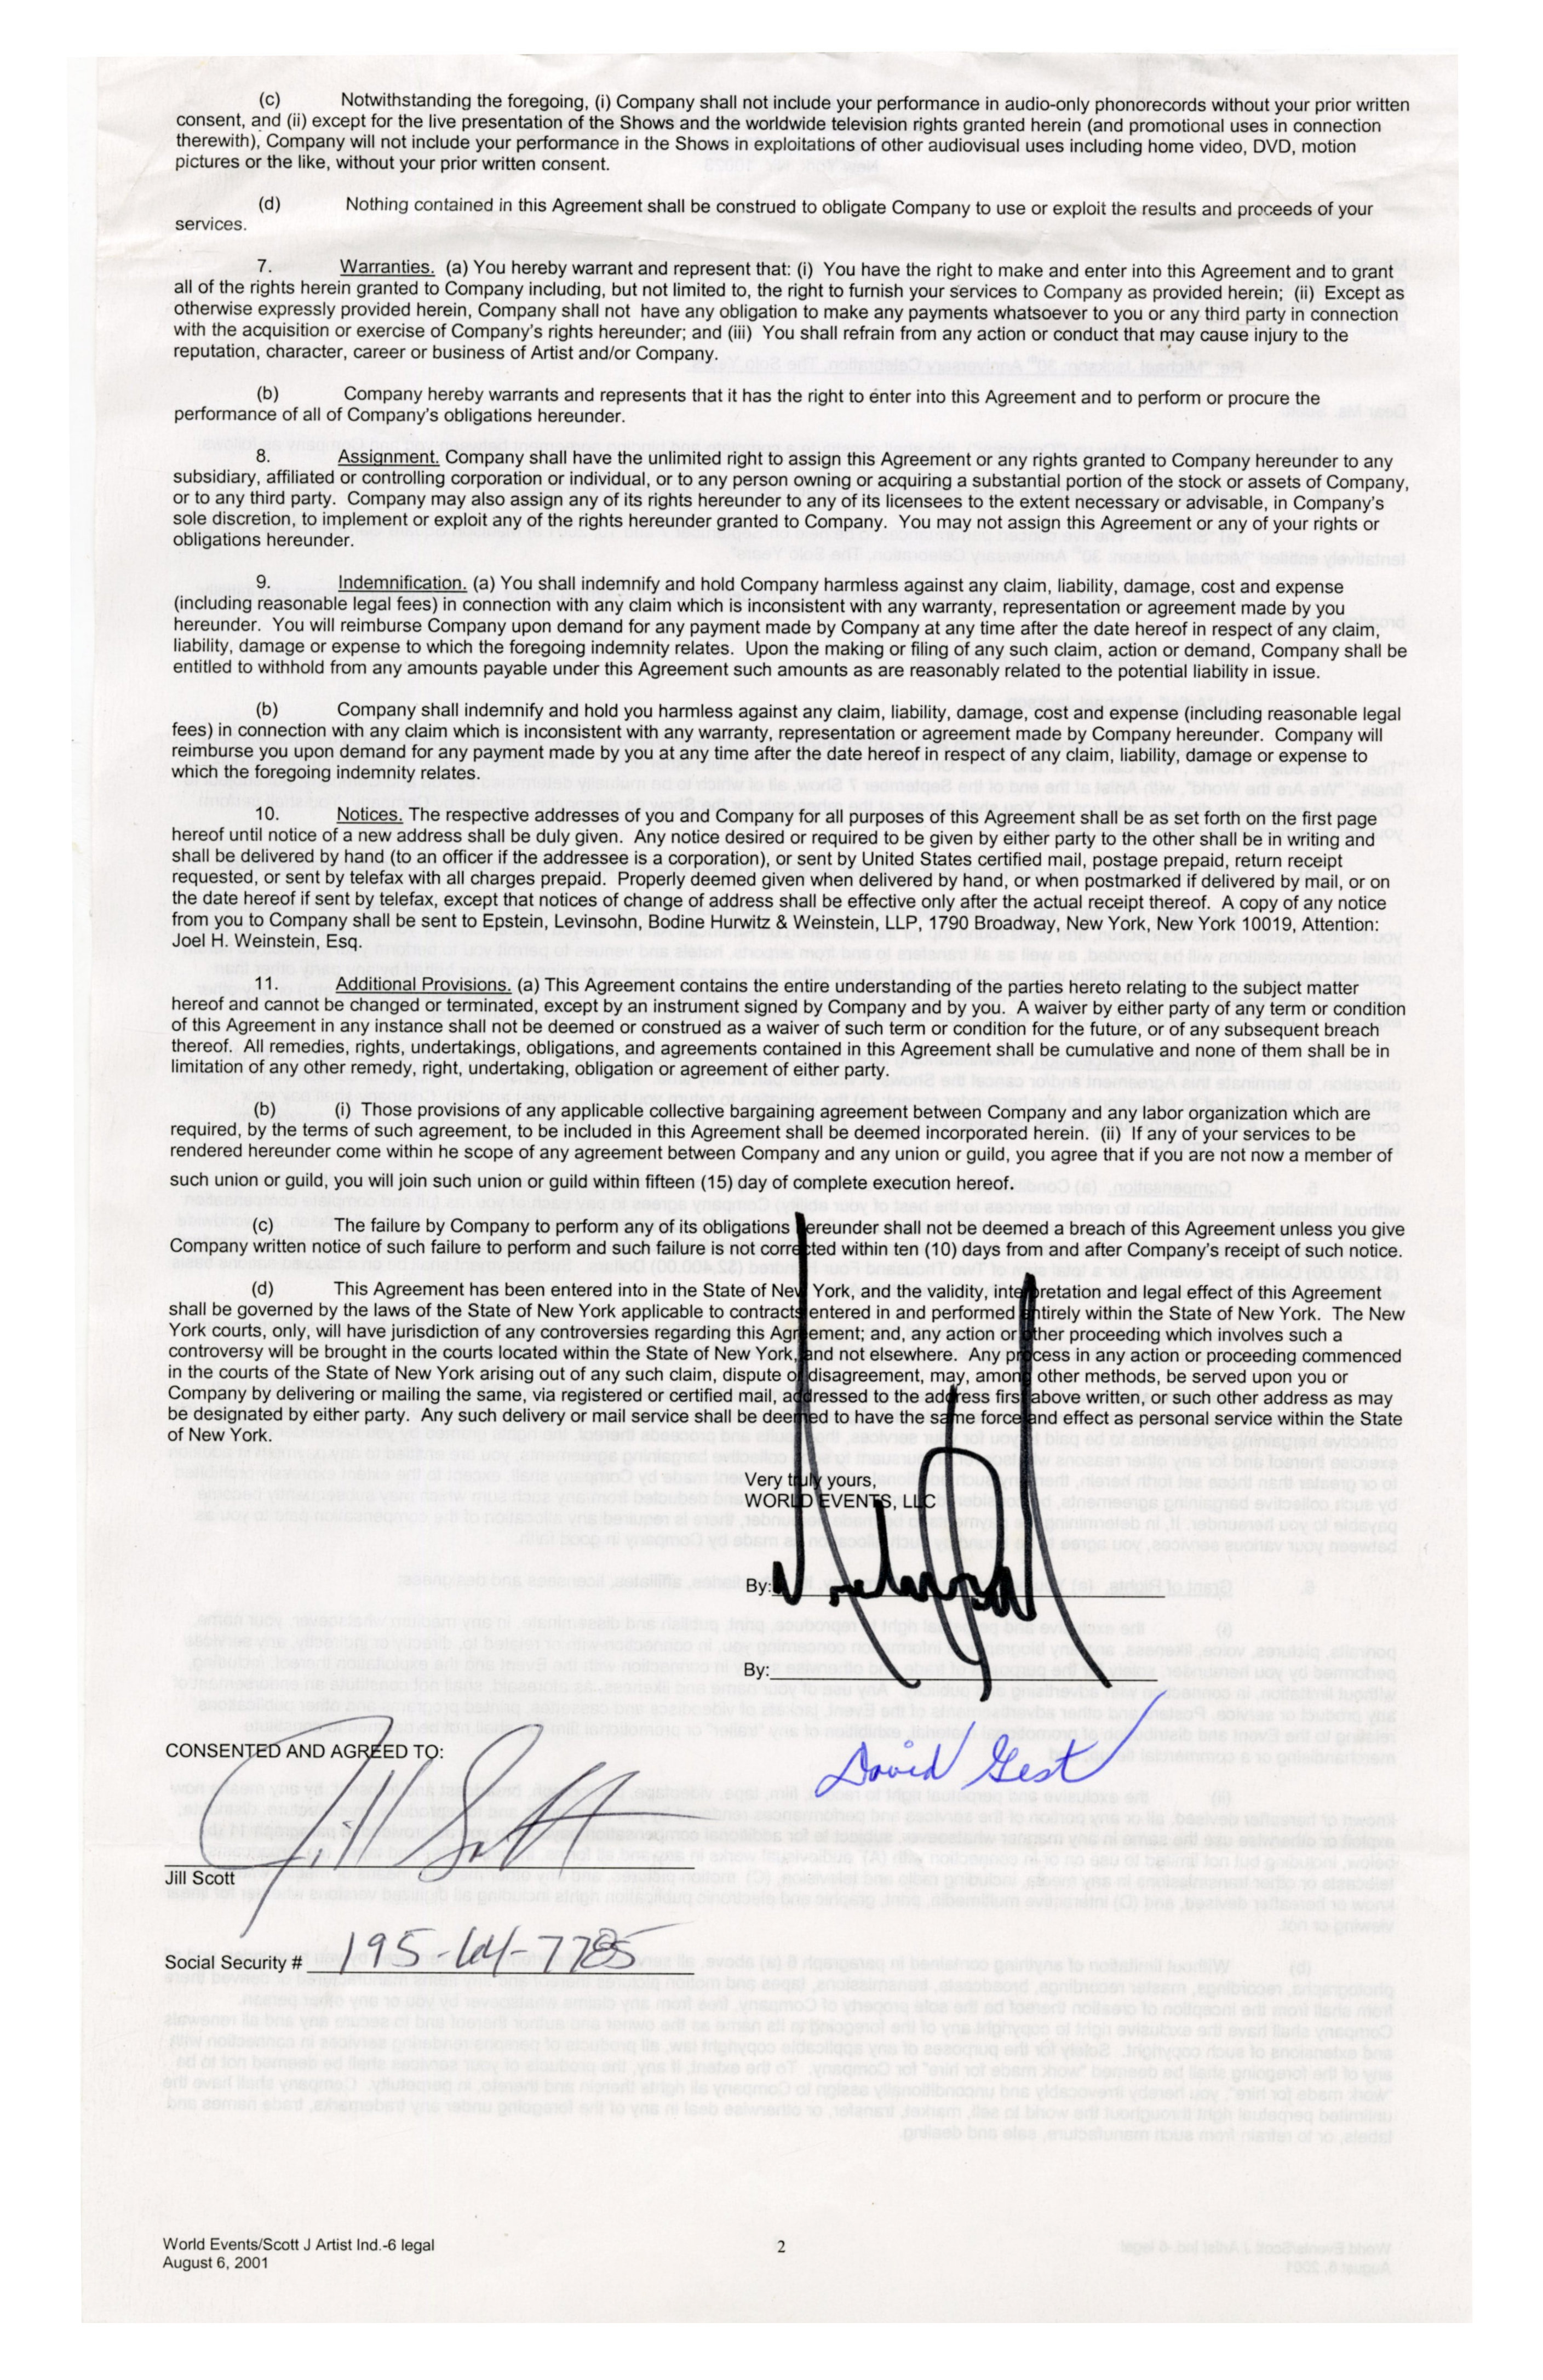 (c) Notwithstanding the foregoing, (i) Company shall not include your performance in audio-only phonorecords without your prior written
consent, and (ii) except for the live presentation of the Shows and the worldwide television rights granted herein (and promotional uses in connection
therewith), Company will not include your performance in the Shows in exploitations of other audiovisual uses including home video, DVD, motion
pictures or the like, without your prior written consent.
(d) Nothing contained in this Agreement shall be construed to obligate Company to use or exploit the results and proceeds of your
services.
7. Warranties. (a) You hereby warrant and represent that: (i) You have the right to make and enter into this Agreement and to grant
all of the rights herein granted to Company including, but not limited to, the right to furnish your services to Company as provided herein; (ii) Except as
otherwise expressly provided herein, Company shall not have any obligation to make any payments whatsoever to you or any third party in connection
with the acquisition or exercise of Company's rights hereunder; and (iii) You shall refrain from any action or conduct that may cause injury to the
reputation, character, career or business of Artist and/or Company.
(b) Company hereby warrants and represents that it has the right to enter into this Agreement and to perform or procure the
performance of all of Company's obligations hereunder.
8. Assignment. Company shall have the unlimited right to assign this Agreement or any rights granted to Company hereunder to any
subsidiary, affiliated or controlling corporation or individual, or to any person owning or acquiring a substantial portion of the stock or assets of Company,
or to any third party. Company may also assign any of its rights hereunder to any of its licensees to the extent necessary or advisable, in Company's
sole discretion, to implement or exploit any of the rights hereunder granted to Company. You may not assign this Agreement or any of your rights or
obligations hereunder.
9. Indemnification. (a) You shall indemnify and hold Company harmless against any claim, liability, damage, cost and expense
(including reasonable legal fees) in connection with any claim which is inconsistent with any warranty, representation or agreement made by you
hereunder. You will reimburse Company upon demand for any payment made by Company at any time after the date hereof in respect of any claim,
liability, damage or expense to which the foregoing indemnity relates. Upon the making or filing of any such claim, action or demand, Company shall be
entitled to withhold from any amounts payable under this Agreement such amounts as are reasonably related to the potential liability in issue.
(b) Company shall indemnify and hold you harmless against any claim, liability, damage, cost and expense (including reasonable legal
fees) in connection with any claim which is inconsistent with any warranty, representation or agreement made by Company hereunder. Company will
reimburse you upon demand for any payment made by you at any time after the date hereof in respect of any claim, liability, damage or expense to
which the foregoing indemnity relates.
10. Notices. The respective addresses of you and Company for all purposes of this Agreement shall be as set forth on the first page
hereof until notice of a new address shall be duly given. Any notice desired or required to be given by either party to the other shall be in writing and
shall be delivered by hand (to an officer if the addressee is a corporation), or sent by United States certified mail, postage prepaid, return receipt
requested, or sent by telefax with all charges prepaid. Properly deemed given when delivered by hand, or when postmarked if delivered by mail, or on
the date hereof if sent by telefax, except that notices of change of address shall be effective only after the actual receipt thereof. A copy of any notice
from you to Company shall be sent to Epstein, Levinsohn, Bodine Hurwitz & Weinstein, LLP, 1790 Broadway, New York, New York 10019, Attention:
Joel H. Weinstein, Esq.
11. Additional Provisions. (a) This Agreement contains the entire understanding of the parties hereto relating to the subject matter
hereof and cannot be changed or terminated, except by an instrument signed by Company and by you. A waiver by either party of any term or condition
of this Agreement in any instance shall not be deemed or construed as a waiver of such term or condition for the future, or of any subsequent breach
thereof. All remedies, rights, undertakings, obligations, and agreements contained in this Agreement shall be cumulative and none of them shall be in
limitation of any other remedy, right, undertaking, obligation or agreement of either party.
(b) (i) Those provisions of any applicable collective bargaining agreement between Company and any labor organization which are
required, by the terms of such agreement, to be included in this Agreement shall be deemed incorporated herein. (ii) If any of your services to be
rendered hereunder come within he scope of any agreement between Company and any union or guild, you agree that if you are not now a member of
such union or guild, you will join such union or guild within fifteen (15) day of complete execution hereof.
(c) The failure by Company to perform any of its obligations hereunder shall not be deemed a breach of this Agreement unless you give
Company written notice of such failure to perform and such failure is not corrected within ten (10) days from and after Company's receipt of such notice.
(d) This Agreement has been entered into in the State of New York, and the validity, interpretation and legal effect of this Agreement
shall be governed by the laws of the State of New York applicable to contracts entered in and performed entirely within the State of New York. The New
York courts, only, will have jurisdiction of any controversies regarding this Agreement; and, any action or other proceeding which involves such a
controversy will be brought in the courts located within the State of New York, and not elsewhere. Any process in any action or proceeding commenced
in the courts of the State of New York arising out of any such claim, dispute or disagreement, may, among other methods, be served upon you or
Company by delivering or mailing the same, via registered or certified mail, addressed to the address first above written, or such other address as may
be designated by either party. Any such delivery or mail service shall be deemed to have the same force and effect as personal service within the State
of New York.
Very truly yours,
WORLD EVENTS, LLC
By:
By:
David Gest
CONSENTED AND AGREED TO:
Jill Scott
Jill Scott
Social Security #
World Events/Scott J Artist Ind.-6 legal
August 6, 2001
2